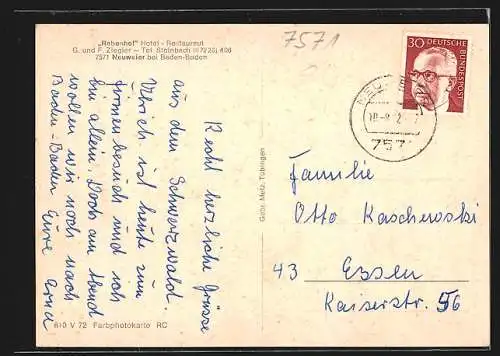 „Rebenhof" Hotel - Restaurant
G. und F. Ziegler — Tel. Steinbach (07223) 406
7571 Neuweier bei Baden-Baden
7571
Recht herzliche Grüsse
aus dem Schwarzwald.
Ulrich ist heute zum
Firmenbesuch und ich
bin allein. Doch am Abend
wollen wir noch nach
Baden-Baden Eure Erna
610 V 72 Farbphotokarte RC
Gebr. Metz, Tübingen
30
DEUTSCHE BUNDESPOST
757
Familie
Otto Kaschewski
43 Essen
Kaiserstr. 56